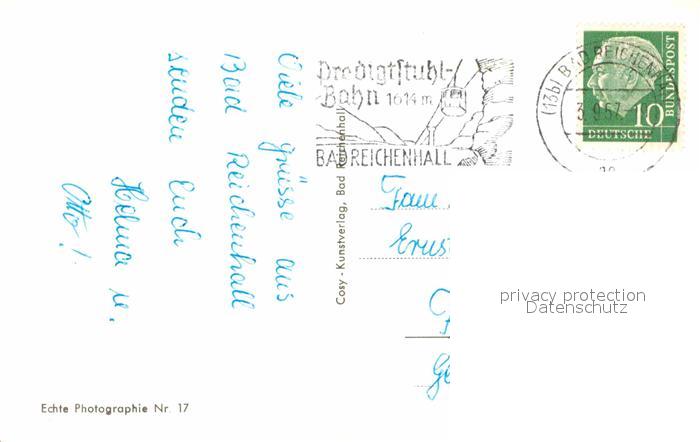 Viele Grüsse aus
Bad Reichenhall
senden Euch
Helma u.
Otto!
Predigtstuhl-
Bahn 1614 m
BAD REICHENHALL
(13b) BAD REICHENH
3.9.57
10
DEUTSCHE
BUNDESPOST
Cosy - Kunstverlag, Bad Reichenhall
Fam.
Erns
privacy protection
Datenschutz
Echte Photographie Nr. 17